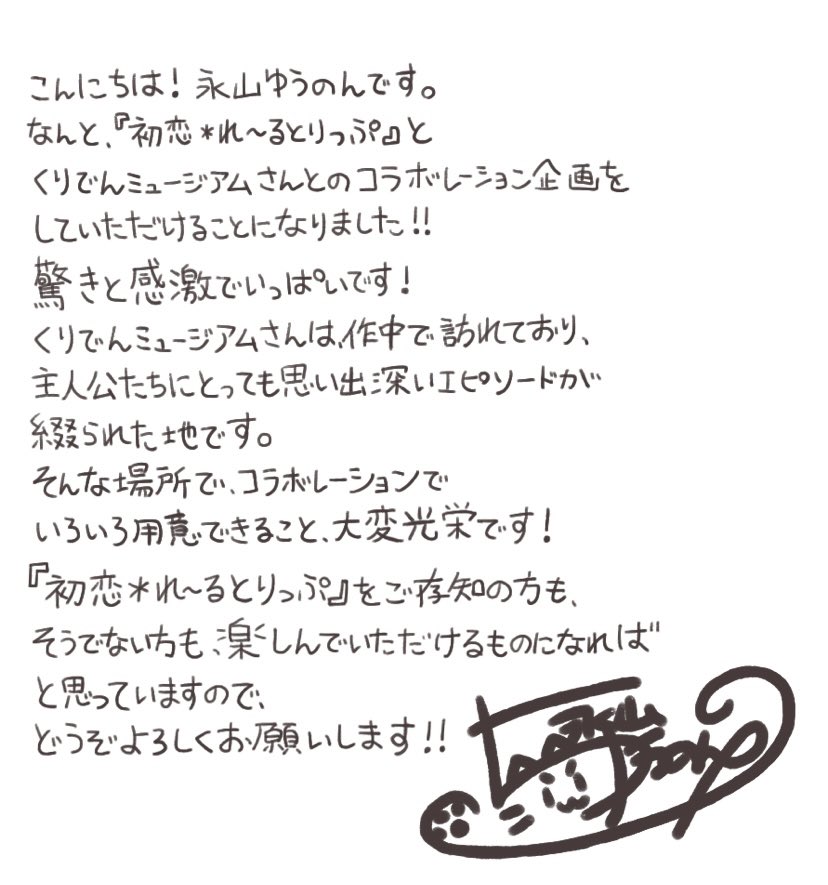 こんにちは！永山ゆうのんです。
なんと、『初恋*れ〜るとりっぷ』と
くりでんミュージアムさんとのコラボレーション企画を
していただけることになりました!!
驚きと感激でいっぱいです！
くりでんミュージアムさんは、作中で訪れており、
主人公たちにとっても思い出深いエピソードが
綴られた地です。
そんな場所で、コラボレーションで
いろいろ用意できること、大変光栄です！
『初恋*れ〜るとりっぷ』をご存知の方も、
そうでない方も、楽しんでいただけるものになれば
と思っていますので、
どうぞよろしくお願いします!!
永山
ゆうのん